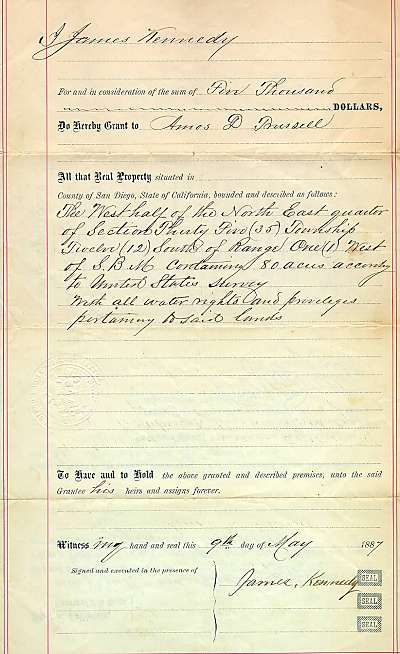 I James Kennedy
For and in consideration of the sum of Five Thousand
DOLLARS,
Do Hereby Grant to Amos D Trussell
All that Real Property situated in
County of San Diego, State of California, bounded and described as follows:
The West half of the North East quarter
of Section Thirty Five (35) Township
Twelve (12) South of Range One (1) West
of S. B. M. Containing 80 acres according
to United States Survey
With all water rights and privileges
pertaining to said lands
To Have and to Hold the above granted and described premises, unto the said
Grantee his heirs and assigns forever.
Witness my hand and seal this 9th day of May 1887
Signed and executed in the presence of
James Kennedy SEAL
SEAL
SEAL